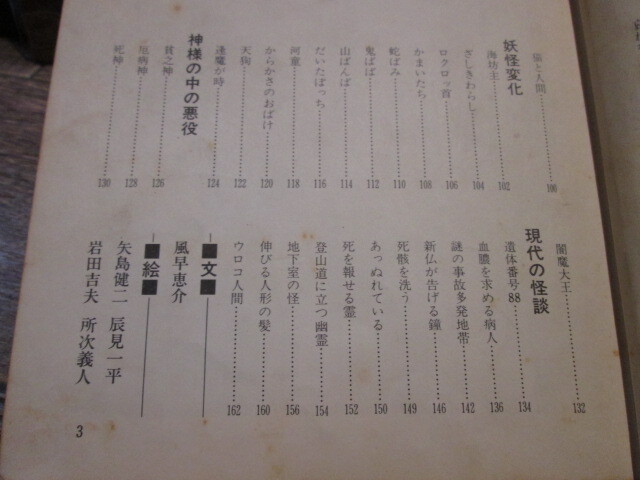 猫と人間 100
妖怪変化
海坊主 102
ざしきわらし 104
ロクロッ首 106
かまいたち 108
蛇ばみ 110
鬼ばば 112
山ばんば 114
だいたぼっち 116
河童 118
からかさのおばけ 120
天狗 122
逢魔が時 124
神様の中の悪役
貧之神 126
疱病神 128
死神 130
閻魔大王 132
現代の怪談
遺体番号88 134
血膿を求める病人 136
謎の事故多発地帯 142
新仏が告げる鐘 146
死骸を洗う 149
あっぬれている 150
死を報せる霊 152
登山道に立つ幽霊 154
地下室の怪 156
伸びる人形の髪 160
ウロコ人間 162
文
風早恵介
絵
矢島健二 辰見一平
岩田吉夫 所次義人
3